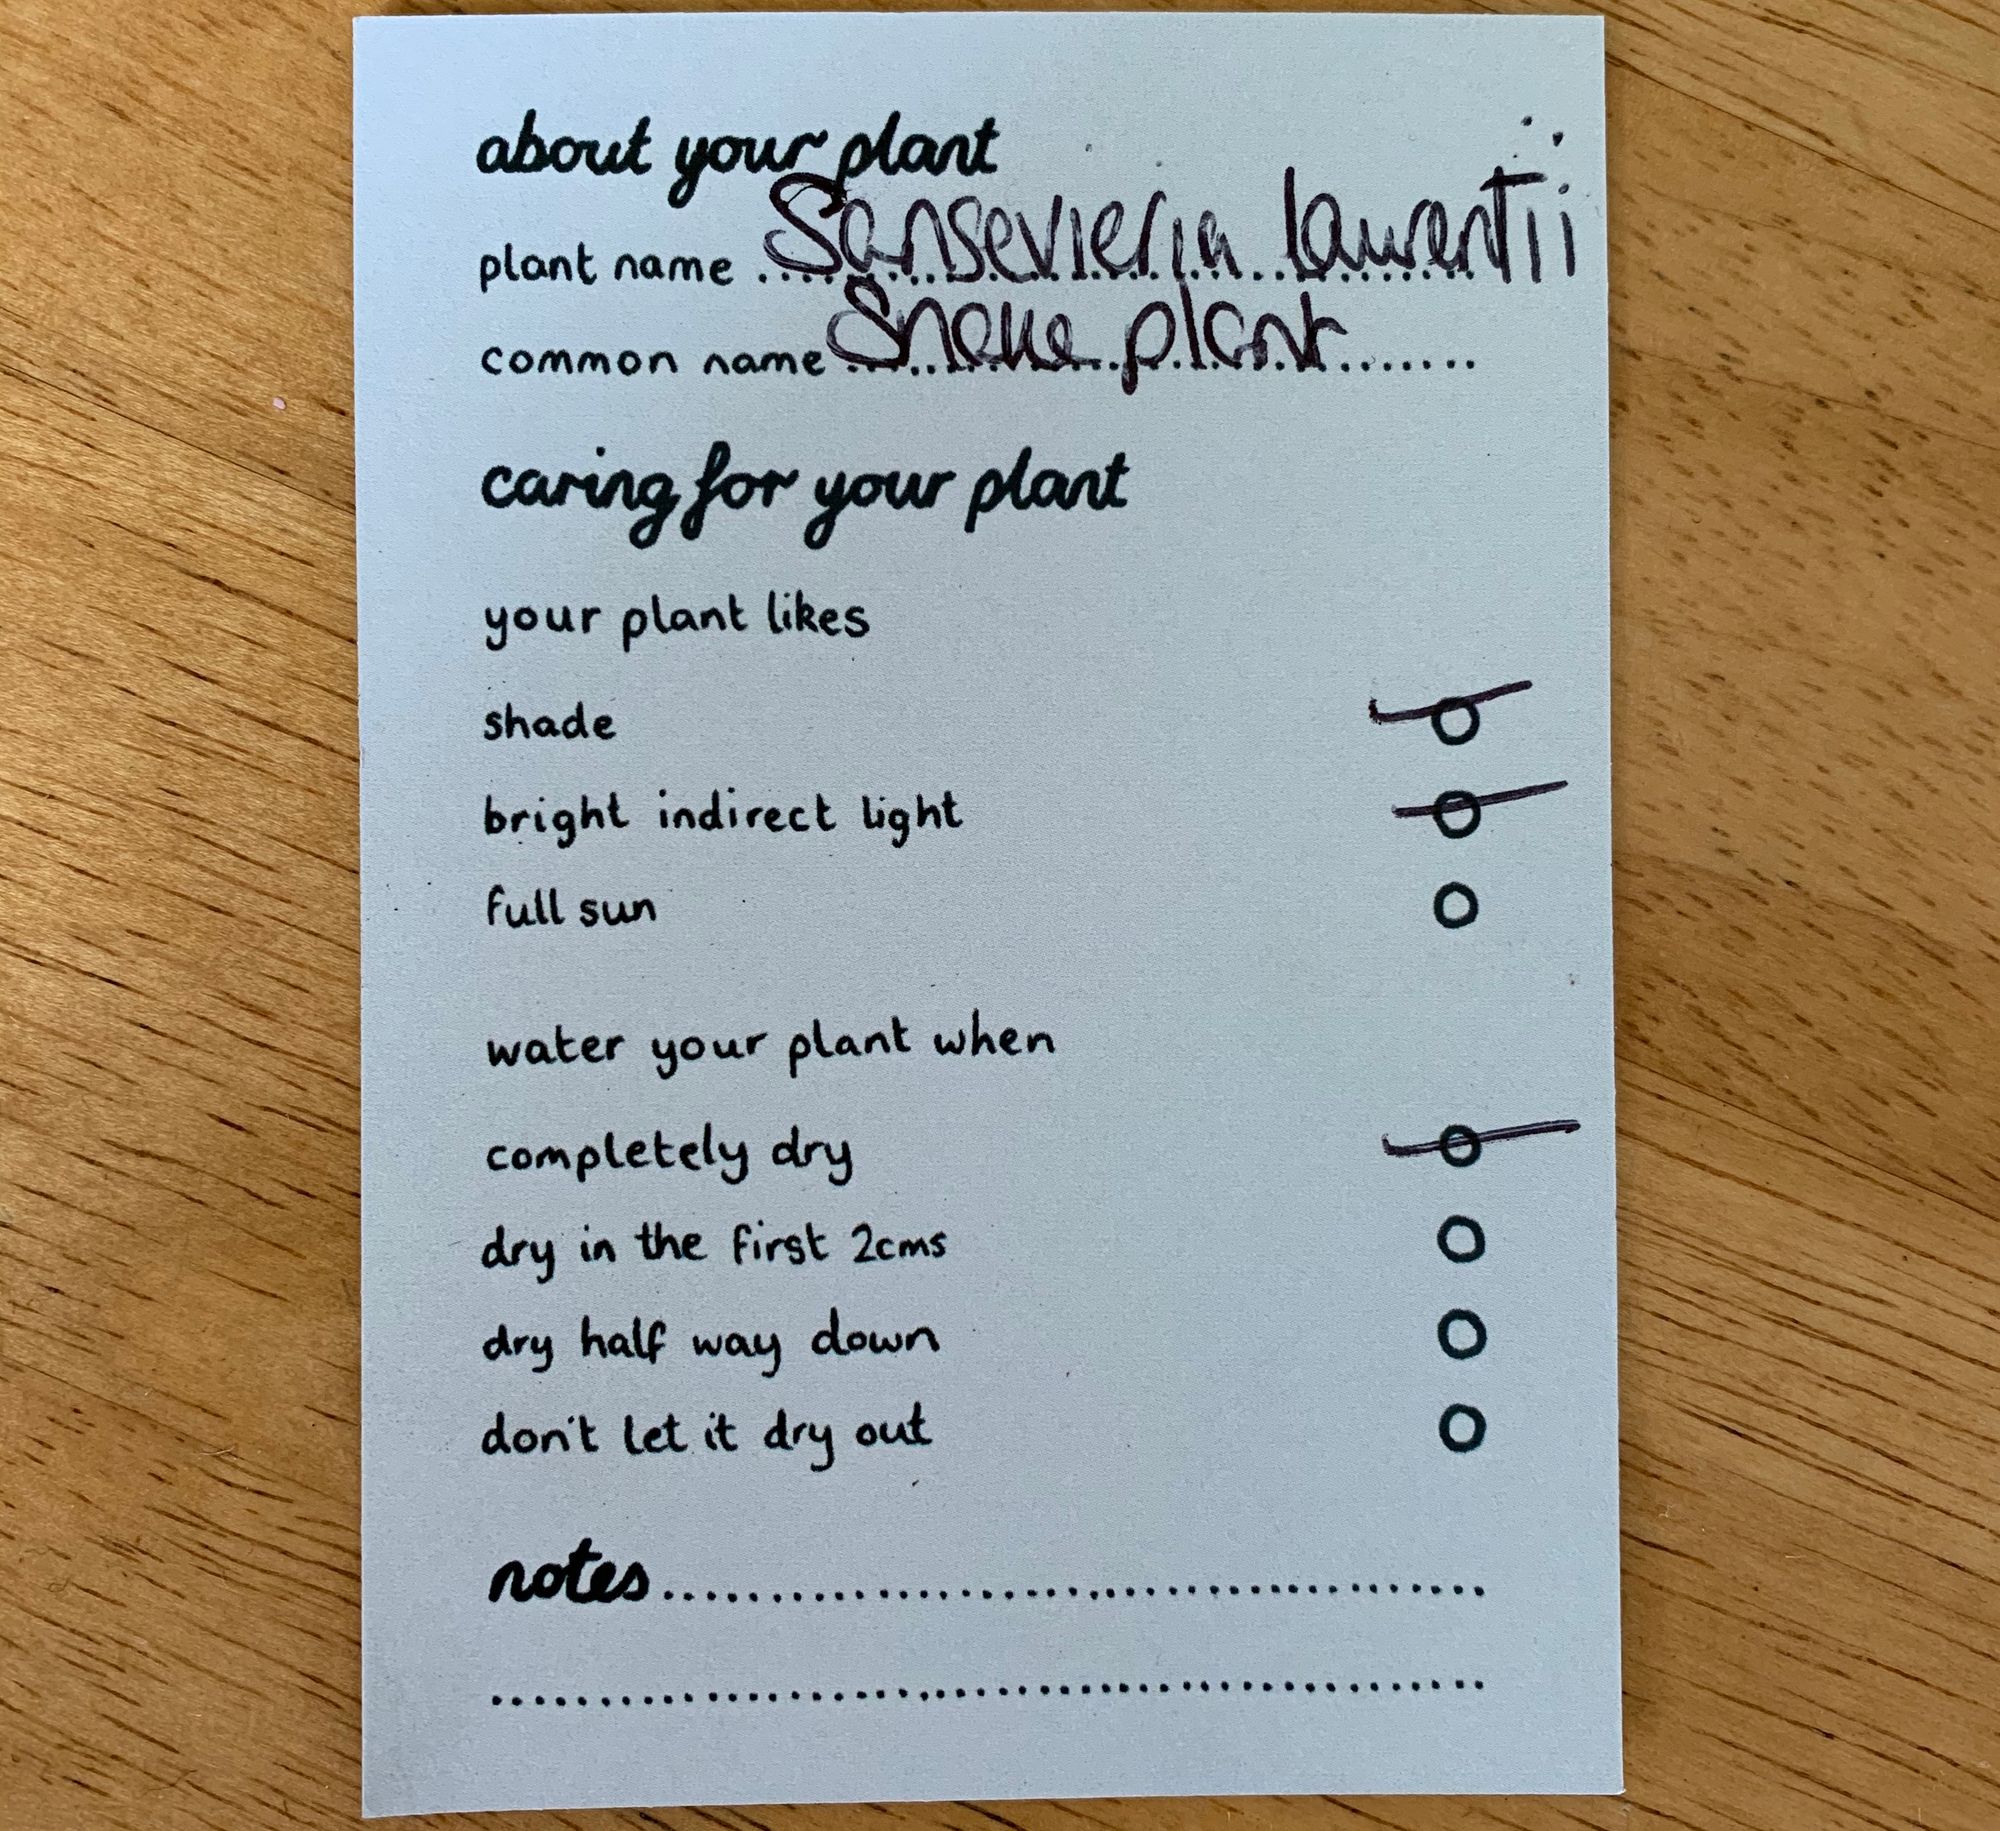 about your plant
plant name Sansevieria laurentii
common name Snake plant
caring for your plant
your plant likes
shade
bright indirect light
full sun
water your plant when
completely dry
dry in the first 2cms
dry half way down
don't let it dry out
notes